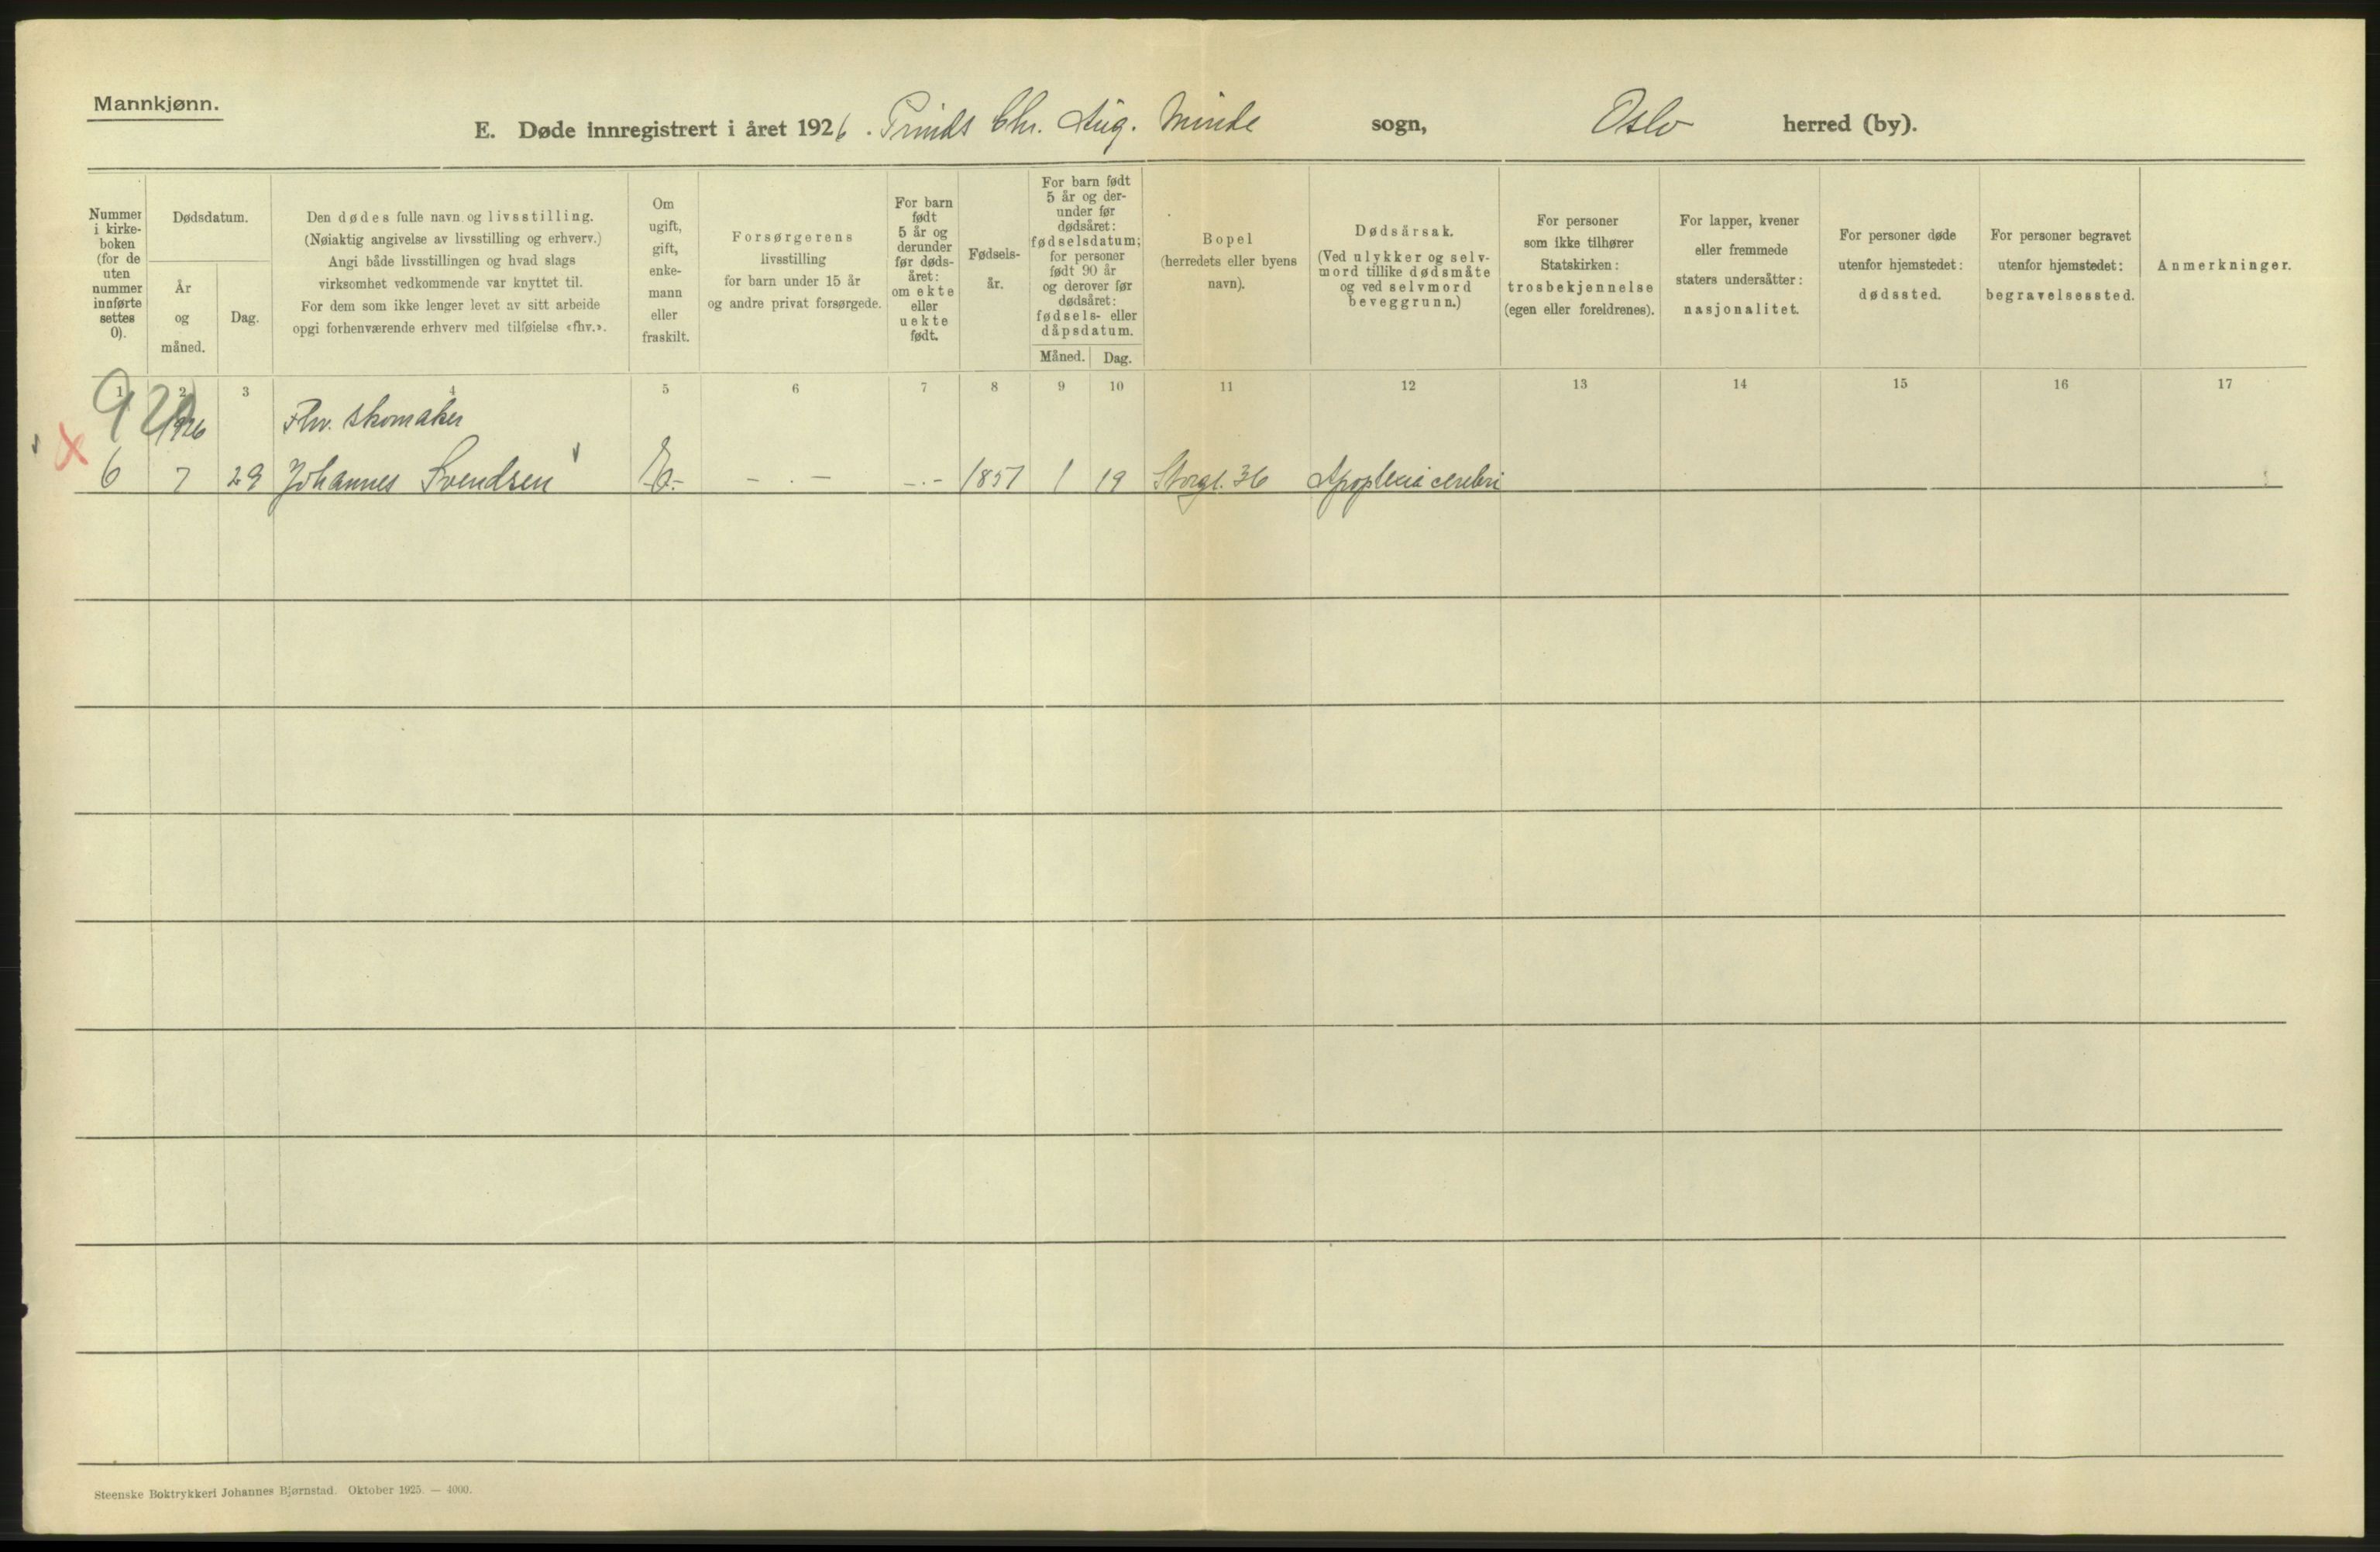 Mannkjønn.
E. Døde innregistrert i året 1926. Prinds Chr. Aug. Minde sogn, Oslo herred (by).
Nummer i kirke-boken (for de uten nummer innførte settes 0).
Dødsdatum.
År og måned.
Dag.
Den dødes fulle navn og livsstilling.
(Nøiaktig angivelse av livsstilling og erhverv.)
Angi både livsstillingen og hvad slags
virksomhet vedkommende var knyttet til.
For dem som ikke lenger levet av sitt arbeide
opgi forhenværende erhverv med tilføielse «fhv.».
Om ugift, gift, enke-mann eller fraskilt.
Forsørgerens
livsstilling
for barn under 15 år
og andre privat forsørgede.
For barn født 5 år og derunder før døds-året: om ekte eller uekte født.
Fødsels-år.
For barn født 5 år og der-under før dødsåret: fødselsdatum; for personer født 90 år og derover før dødsåret: fødsels- eller dåpsdatum.
Måned. Dag.
Bopel
(herredets eller byens
navn).
Dødsårsak.
(Ved ulykker og selv-
mord tillike dødsmåte
og ved selvmord
beveggrunn.)
For personer
som ikke tilhører
Statskirken:
trosbekjennelse
(egen eller foreldrenes).
For lapper, kvener
eller fremmede
staters undersåtter:
nasjonalitet.
For personer døde
utenfor hjemstedet:
dødssted.
For personer begravet
utenfor hjemstedet:
begravelsessted.
Anmerkninger.
1 2 3 4 5 6 7 8 9 10 11 12 13 14 15 16 17
1926 Fhv. skomaker
6 7 29 Johannes Svendsen - . - - . - 1857 1 19 Storgt. 36 Apoplexia cerebri
Steenske Boktrykkeri Johannes Bjørnstad. Oktober 1925. — 4000.